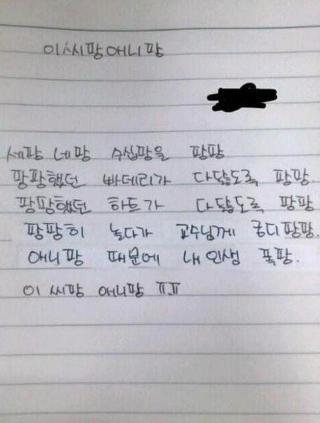 이씨팡애니팡
세팡 네팡 수십팡을 팡팡
팡팡했던 빠데리가 다닳도록 팡팡
팡팡했던 하트가 다닳도록 팡팡
팡팡히 놀다가 교수님께 궁디팡팡.
애니팡 때문에 내인생 폭팡.
이 씨팡 애니팡 ㅠㅠ